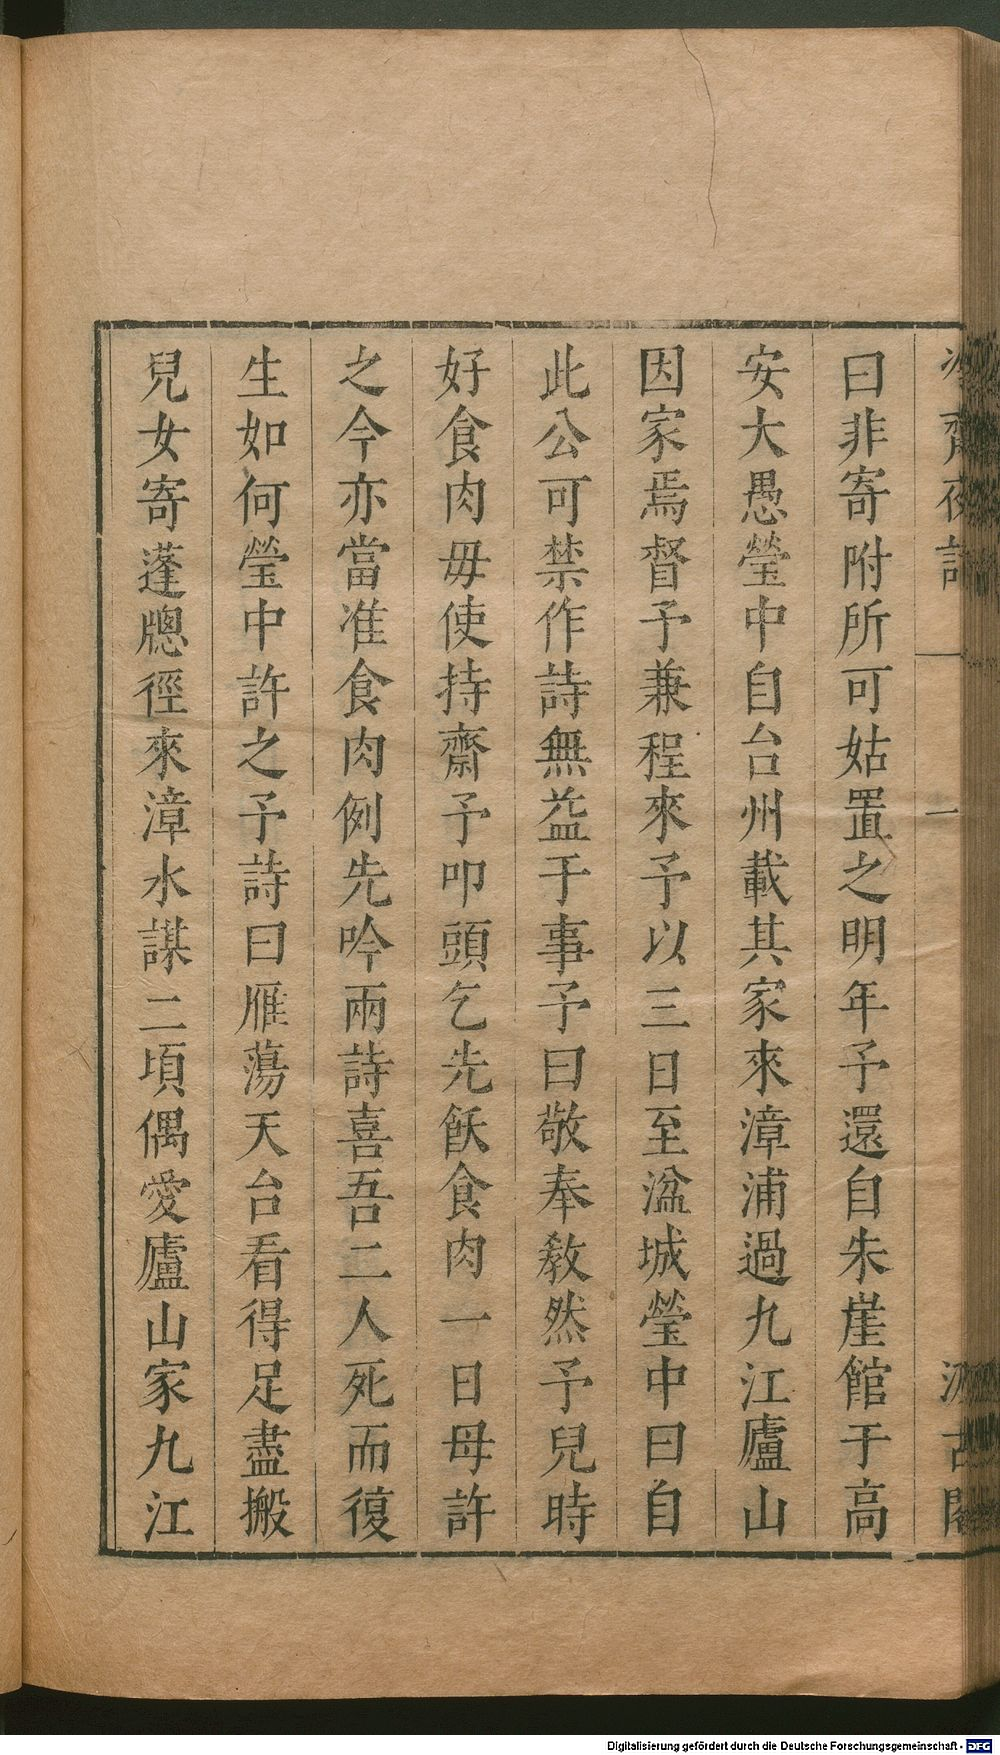 齋夜話
一
一
汲古閣
曰非寄附所可姑置之明年予還自朱崖館于高
安大愚瑩中自台州載其家來漳浦過九江廬山
因家焉督予兼程來予以三日至湓城瑩中曰自
此公可禁作詩無益于事予曰敬奉敎然予兒時
好食肉毋使持齋予叩頭乞先飫食肉一日母許
之今亦當准食肉例先吟兩詩喜吾二人死而復
生如何瑩中許之予詩曰雁蕩天台看得足盡搬
兒女寄蓬牎徑來漳水謀二頃偶愛廬山家九江
Digitalisierung gefördert durch die Deutsche Forschungsgemeinschaft - DFG